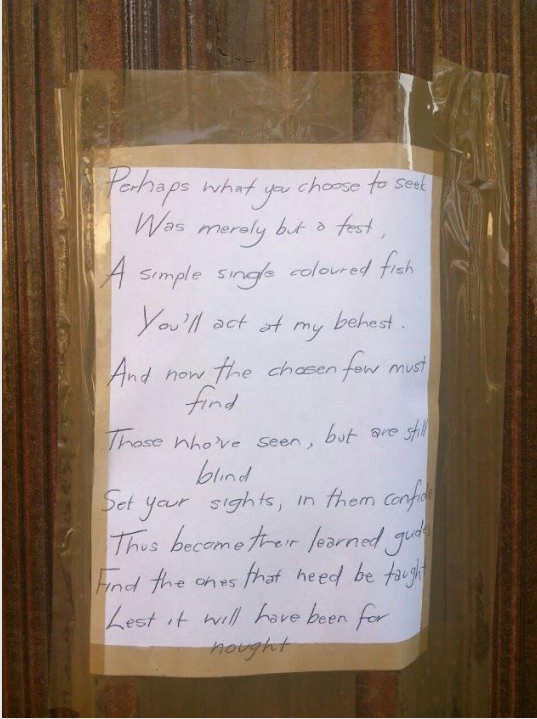 Perhaps what you choose to seek
Was merely but a test,
A simple single coloured fish
You'll act at my behest.
And now the chosen few must
find
Those who've seen, but are still
blind
Set your sights, in them confide
Thus become their learned gudes
Find the ones that need be taught
Lest it will have been for
nought